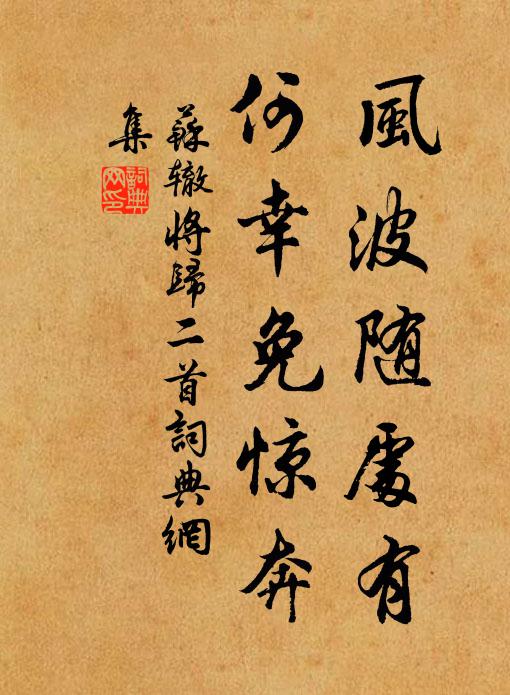 風波随處有
何幸免惊奔
蘇辙将歸二首詞典網
集
詞典
网印